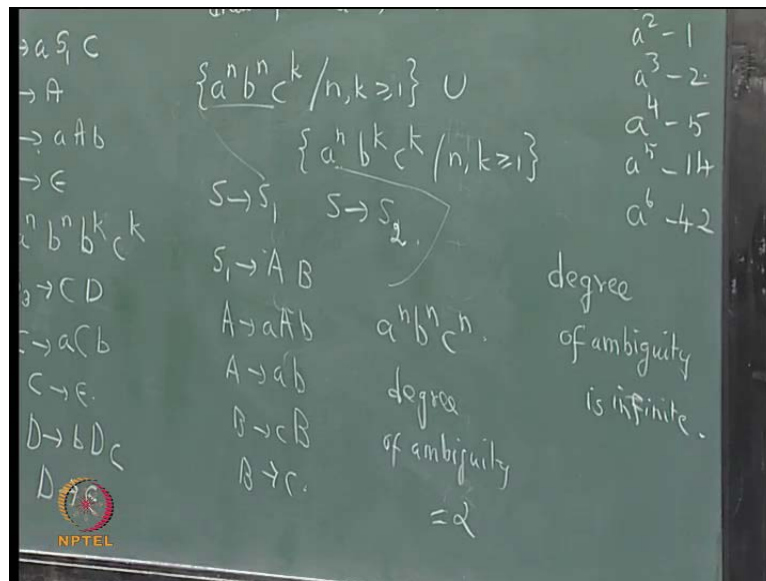 → a S₁ C
→ A
→ a A b
→ ϵ
aⁿ bⁿ bᵏ cᵏ
→ C D
→ a C b
C → ϵ.
D → b D c
D → ϵ
{aⁿ bⁿ cᵏ / n, k ≥ 1} ∪
{aⁿ bᵏ cᵏ / n, k ≥ 1}
S → S₁ S → S₂.
S₁ → A B
A → a A b
A → a b
B → c B
B → c.
aⁿ bⁿ cⁿ.
degree
of ambiguity
= 2
a² - 1
a³ - 2.
a⁴ - 5
a⁵ - 14
a⁶ - 42
degree
of ambiguity
is infinite.
NPTEL